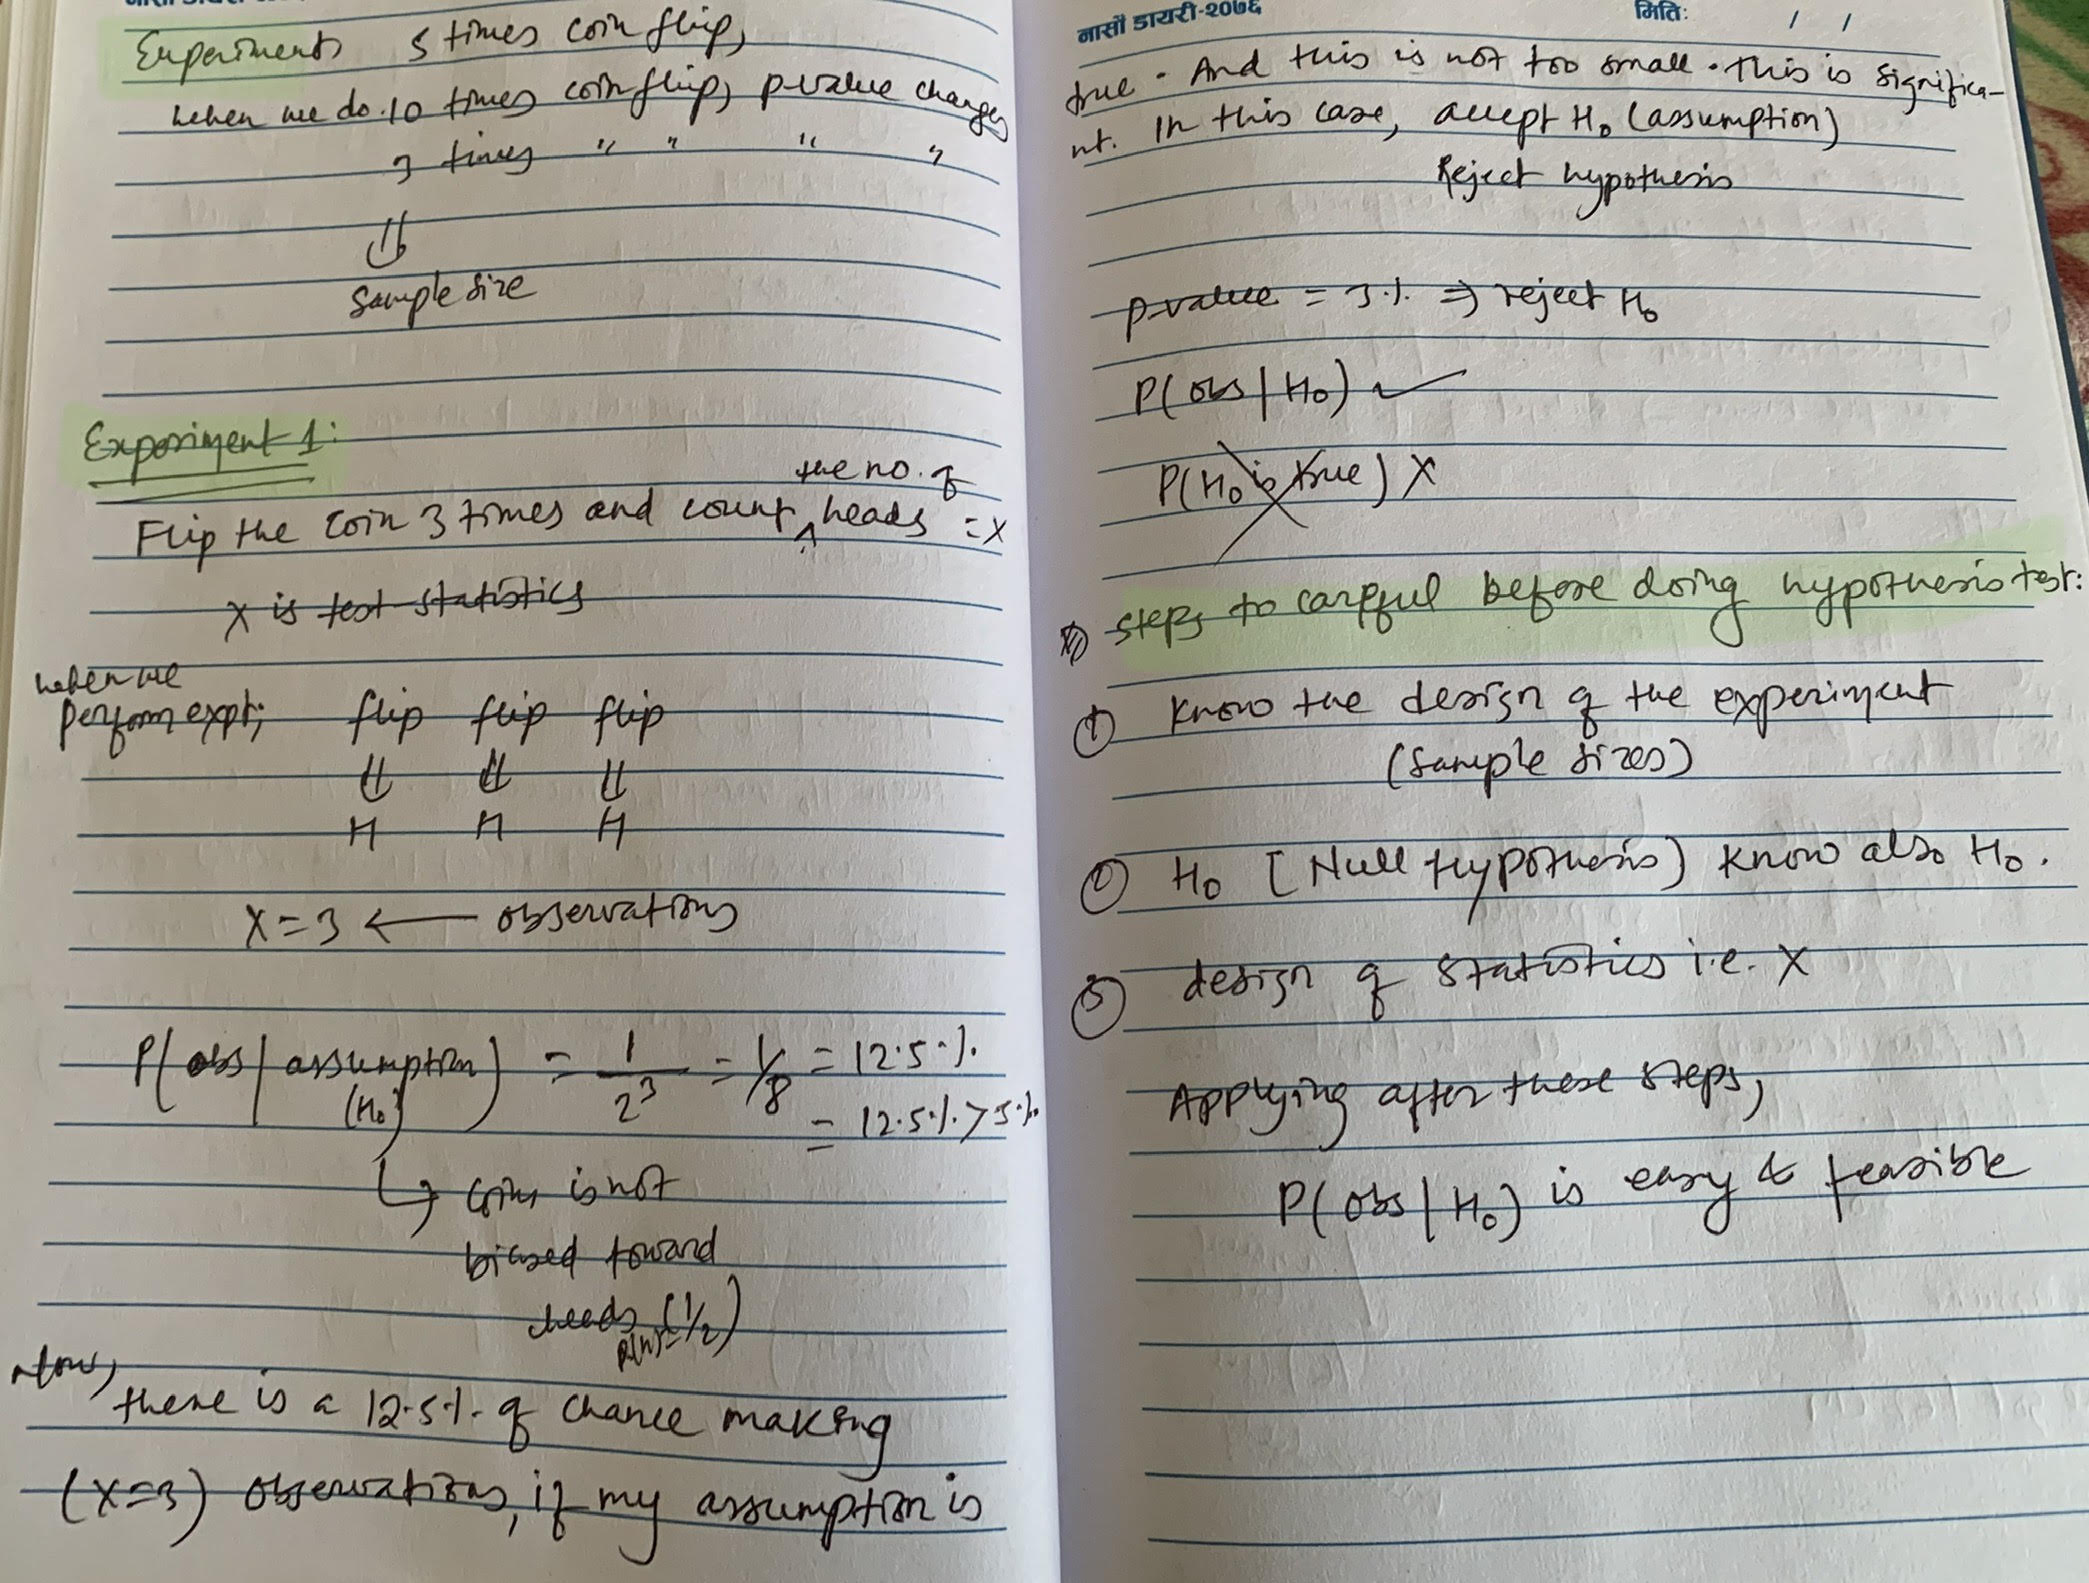 Experiments 5 times coin flip,
when we do 10 times coin flip, p-value changes
3 times " " " "
Sample Size
Experiment 1:
the no. of
Flip the coin 3 times and count heads = X
X is test statistics
when we
perform expt; flip flip flip
H H H
X = 3 ← observations
P(obs | assumption) = 1/2³ = 1/8 = 12.5%
(H₀) = 12.5% > 5%
coin is not
biased toward
heads (1/2)
P(H)=
Now,
there is a 12.5% of chance making
(X=3) observations, if my assumption is
नासों डायरी-२०७६ मितिः / /
true. And this is not too small. This is significa-
nt. In this case, accept H₀ (assumption)
Reject hypothesis
p-value = 3% ⇒ reject H₀
P(obs | H₀) ✓
P(H₀ is true) X
steps to careful before doing hypothesis test:
① Know the design of the experiment
(Sample sizes)
② H₀ [Null Hypothesis) Know also H₀.
③ design of statistics i.e. X
Applying after these steps,
P(obs | H₀) is easy & feasible